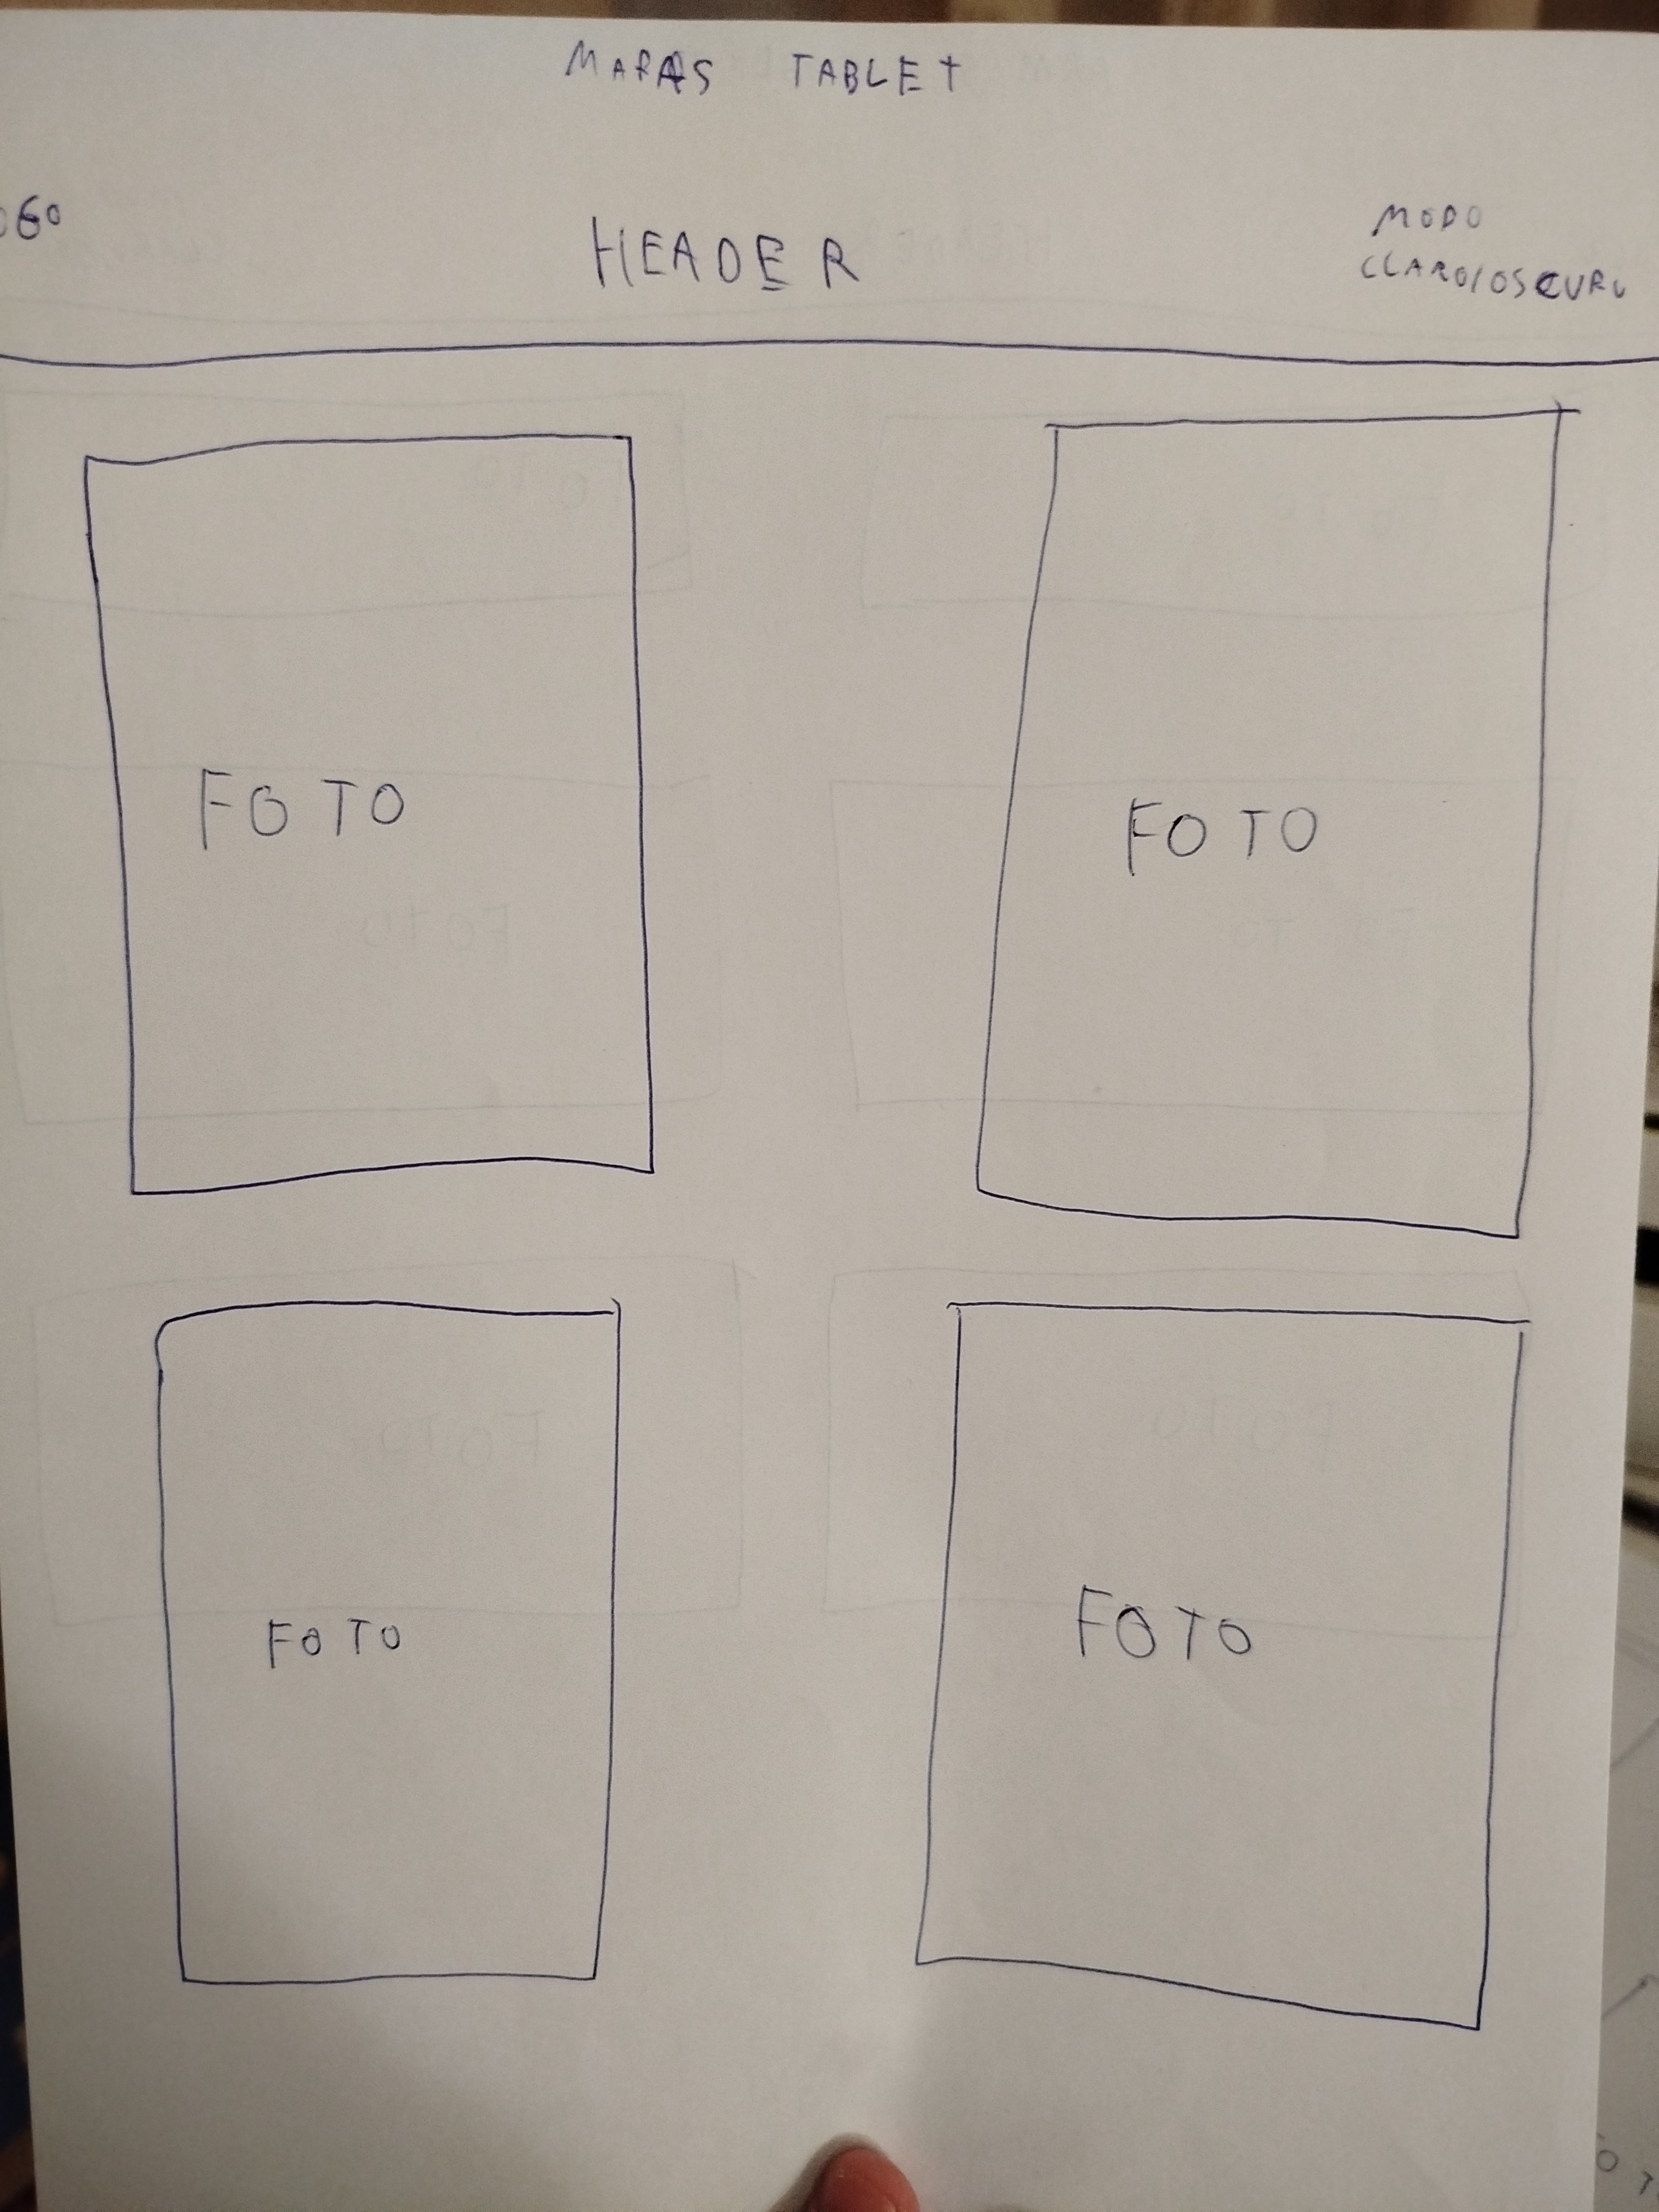 MAPAS TABLET
OGO
HEADER
MODO
CLARO/OSCURO
FOTO
FOTO
FOTO
FOTO